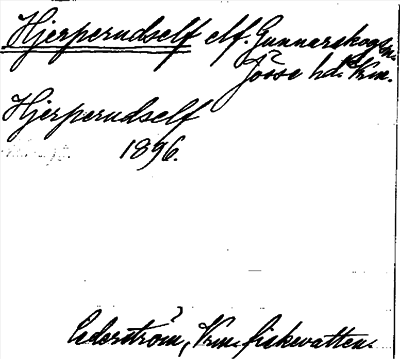 Hjerperudself elf. Gunnarskogs sn.
Jösse hd. Vrm.
Hjerperudself
1896.
Cederström, Vrm. fiskevatten.